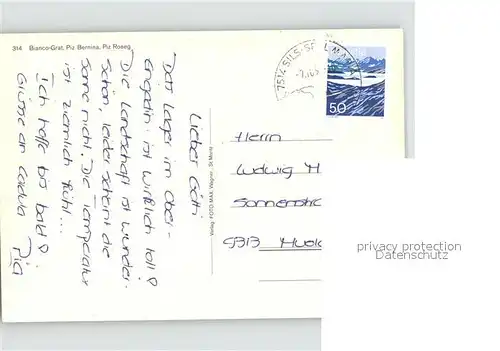 314 Bianco-Grat, Piz Bernina, Piz Roseg
Lieber Götti
Das Lager im Ober-
engadin ist wirklich toll!
Die Landschaft ist wunder-
schön, leider scheint die
Sonne nicht. Die Temperatur
ist ziemlich kühl...
Ich hoffe bis bald!
Grüsse an
Pia
Verlag FOTO-MAX Wagner, St. Moritz
7514 SILS-SEGL MARIA
50
Herrn
Ludwig
Sonnenstr
9313
privacy protection
Datenschutz